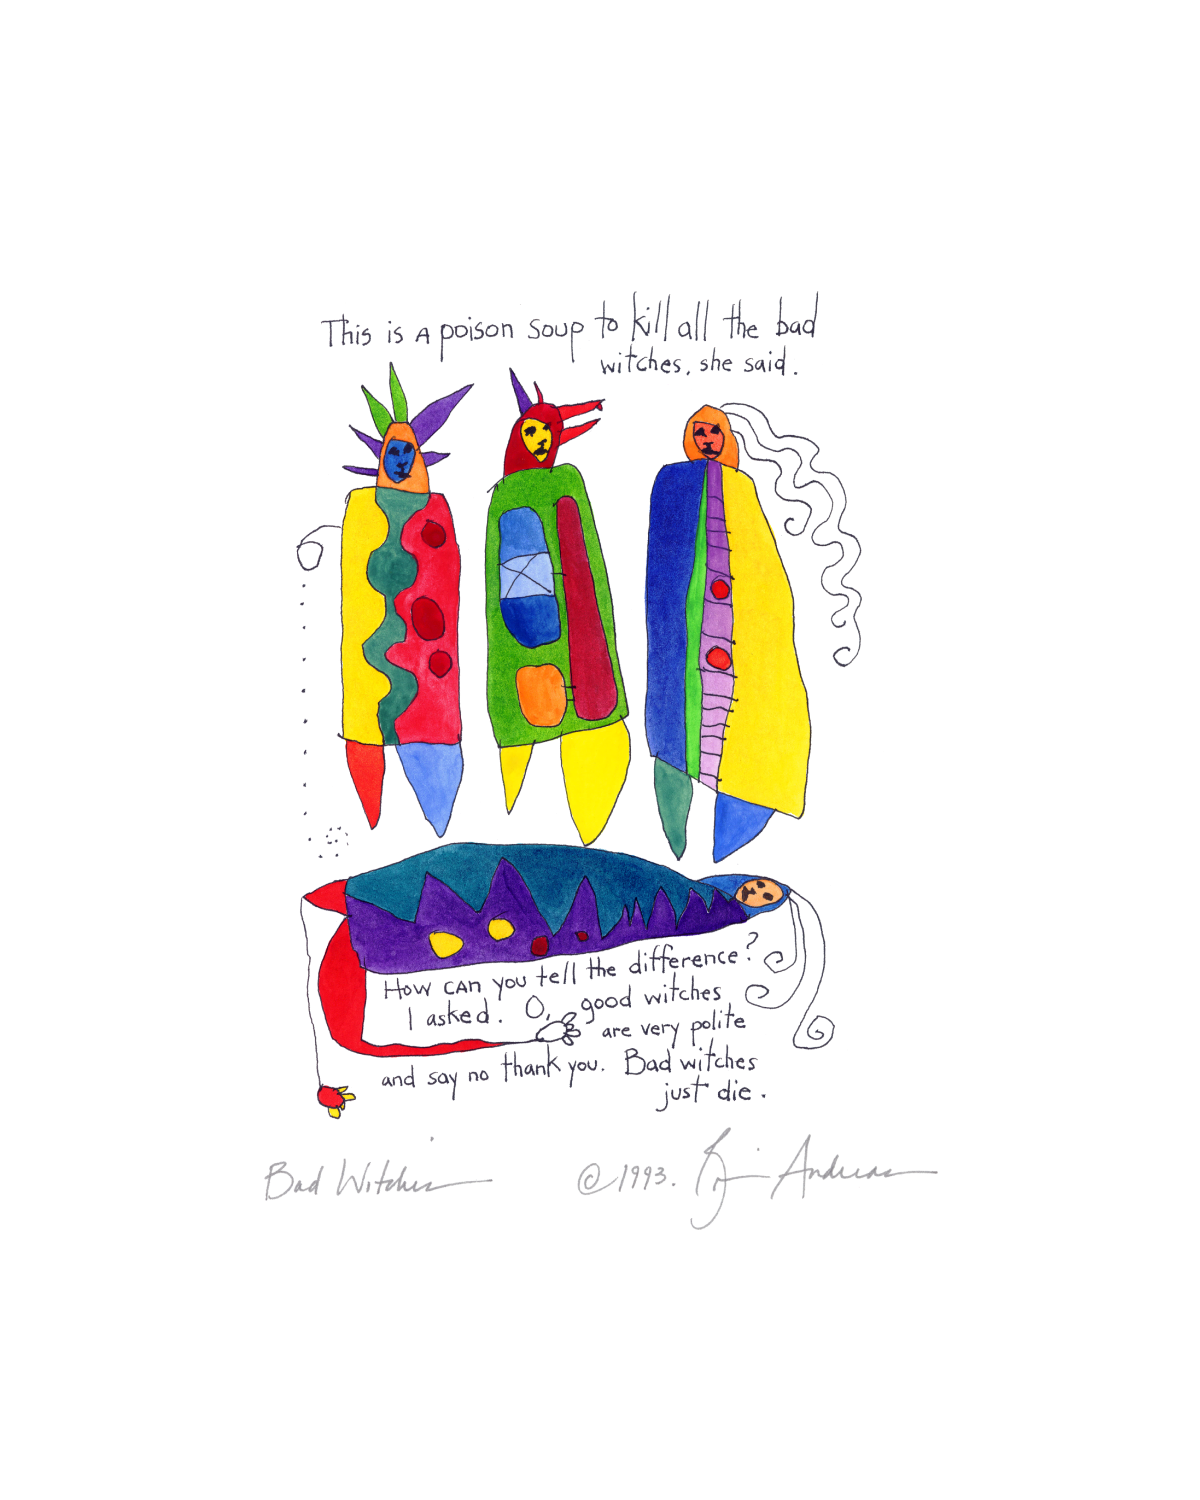 This is a poison soup to kill all the bad
witches, she said.
How can you tell the difference?
I asked. O, good witches
are very polite
and say no thank you. Bad witches
just die.
Bad Witches ©1993. Brian Andreas